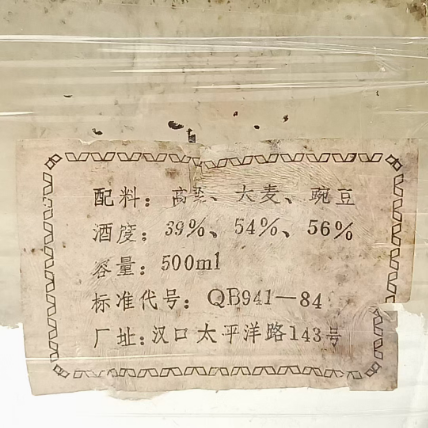 配料：高粱、大麦、豌豆
酒度：39%、54%、56%
容量：500ml
标准代号：QB941—84
厂址：汉口太平洋路143号